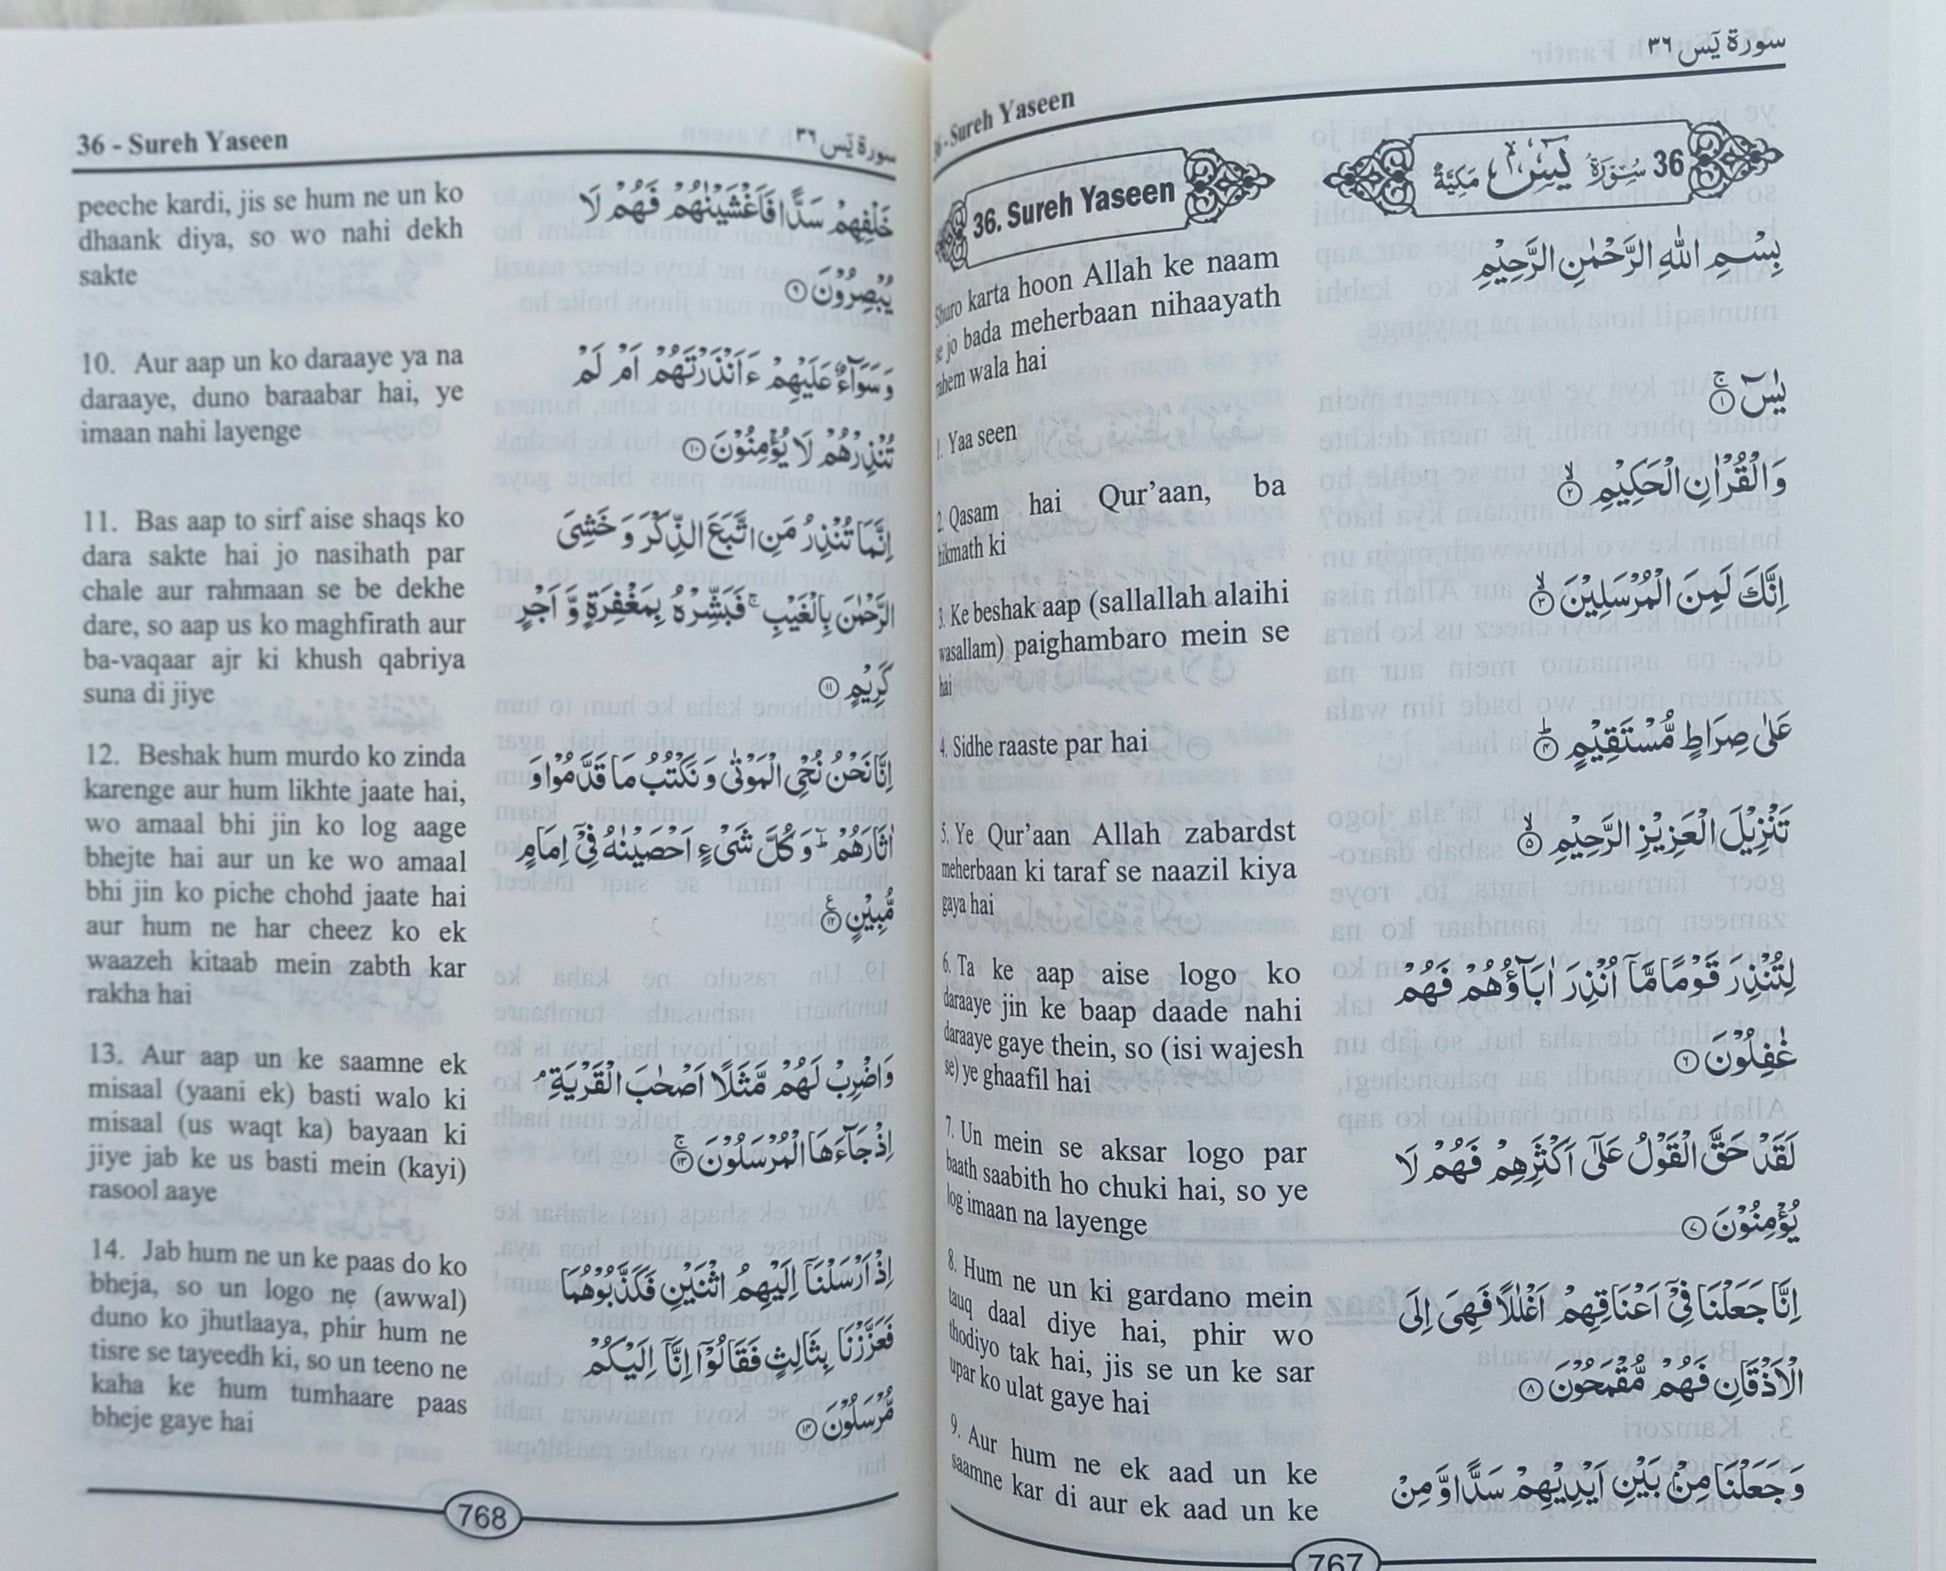 36 - Sureh Yaseen
سورة يٓس ٣٦
36. Sureh Yaseen
36 سُوْرَةُ يٰسٓ مَكِّيَّةٌ
Shuro karta hoon Allah ke naam
se jo bada meherbaan nihaayath
rahem wala hai
بِسْمِ اللّٰهِ الرَّحْمٰنِ الرَّحِيْمِ
1. Yaa seen
يٰسٓ ۚ ۝١
2. Qasam hai Qur'aan, ba
hikmath ki
وَالْقُرْاٰنِ الْحَكِيْمِ ۙ ۝٢
3. Ke beshak aap (sallallah alaihi
wasallam) paighambaro mein se
hai
اِنَّكَ لَمِنَ الْمُرْسَلِيْنَ ۙ ۝٣
4. Sidhe raaste par hai
عَلٰى صِرَاطٍ مُّسْتَقِيْمٍ ؕ ۝٤
5. Ye Qur'aan Allah zabardst
meherbaan ki taraf se naazil kiya
gaya hai
تَنْزِيْلَ الْعَزِيْزِ الرَّحِيْمِ ۙ ۝٥
6. Ta ke aap aise logo ko
daraaye jin ke baap daade nahi
daraaye gaye thein, so (isi wajesh
se) ye ghaafil hai
لِتُنْذِرَ قَوْمًا مَّاۤ اُنْذِرَ اٰبَآؤُهُمْ فَهُمْ
غٰفِلُوْنَ ۝٦
7. Un mein se aksar logo par
baath saabith ho chuki hai, so ye
log imaan na layenge
لَقَدْ حَقَّ الْقَوْلُ عَلٰۤى اَكْثَرِهِمْ فَهُمْ لَا
يُؤْمِنُوْنَ ۝٧
8. Hum ne un ki gardano mein
tauq daal diye hai, phir wo
thodiyo tak hai, jis se un ke sar
upar ko ulat gaye hai
اِنَّا جَعَلْنَا فِيْۤ اَعْنَاقِهِمْ اَغْلٰلًا فَهِيَ اِلَى
الْاَذْقَانِ فَهُمْ مُّقْمَحُوْنَ ۝٨
9. Aur hum ne ek aad un ke
saamne kar di aur ek aad un ke
وَجَعَلْنَا مِنْۢ بَيْنِ اَيْدِيْهِمْ سَدًّا وَّ مِنْ
767
36 - Sureh Yaseen
سورة يٓس ٣٦
peeche kardi, jis se hum ne un ko
dhaank diya, so wo nahi dekh
sakte
خَلْفِهِمْ سَدًّا فَاَغْشَيْنٰهُمْ فَهُمْ لَا
يُبْصِرُوْنَ ۝٩
10. Aur aap un ko daraaye ya na
daraaye, duno baraabar hai, ye
imaan nahi layenge
وَسَوَآءٌ عَلَيْهِمْ ءَاَنْذَرْتَهُمْ اَمْ لَمْ
تُنْذِرْهُمْ لَا يُؤْمِنُوْنَ ۝١٠
11. Bas aap to sirf aise shaqs ko
dara sakte hai jo nasihath par
chale aur rahmaan se be dekhe
dare, so aap us ko maghfirath aur
ba-vaqaar ajr ki khush qabriya
suna di jiye
اِنَّمَا تُنْذِرُ مَنِ اتَّبَعَ الذِّكْرَ وَ خَشِيَ
الرَّحْمٰنَ بِالْغَيْبِ ۚ فَبَشِّرْهُ بِمَغْفِرَةٍ وَّ اَجْرٍ
كَرِيْمٍ ۝١١
12. Beshak hum murdo ko zinda
karenge aur hum likhte jaate hai,
wo amaal bhi jin ko log aage
bhejte hai aur un ke wo amaal
bhi jin ko piche chohd jaate hai
aur hum ne har cheez ko ek
waazeh kitaab mein zabth kar
rakha hai
اِنَّا نَحْنُ نُحْيِ الْمَوْتٰى وَ نَكْتُبُ مَا قَدَّمُوْا وَ
اٰثَارَهُمْ ؕ وَ كُلَّ شَيْءٍ اَحْصَيْنٰهُ فِيْۤ اِمَامٍ
مُّبِيْنٍ ۝١٢
13. Aur aap un ke saamne ek
misaal (yaani ek) basti walo ki
misaal (us waqt ka) bayaan ki
jiye jab ke us basti mein (kayi)
rasool aaye
وَاضْرِبْ لَهُمْ مَّثَلًا اَصْحٰبَ الْقَرْيَةِ ۘ
اِذْ جَآءَهَا الْمُرْسَلُوْنَ ۚ ۝١٣
14. Jab hum ne un ke paas do ko
bheja, so un logo ne (awwal)
duno ko jhutlaaya, phir hum ne
tisre se tayeedh ki, so un teeno ne
kaha ke hum tumhaare paas
bheje gaye hai
اِذْ اَرْسَلْنَاۤ اِلَيْهِمُ اثْنَيْنِ فَكَذَّبُوْهُمَا
فَعَزَّزْنَا بِثَالِثٍ فَقَالُوْۤا اِنَّاۤ اِلَيْكُمْ
مُّرْسَلُوْنَ ۝١٤
768